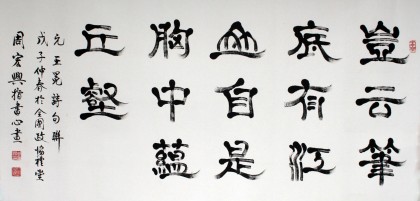 豈云筆
底有江
山自是
胸中蘊
丘壑
元王冕詩句聯
戊子仲春於全國政協禮堂
周宏興指書心畫